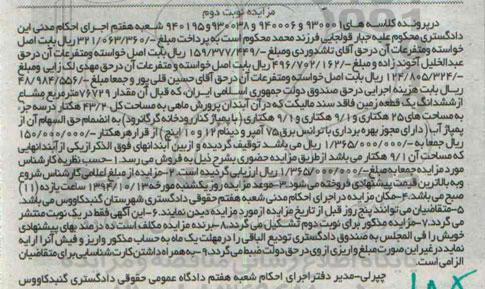 مزایده نوبت دوم
در پرونده کلاسه های ۹۳۰۰۰۱ و ۹۴۰۰۰۶ و ۹۳۰۰۳۸ و ۹۴۰۱۹۵ شعبه هفتم اجرای احکام مدنی این
دادگستری محکوم علیه جبار قولجایی فرزند محمد محکوم است به پرداخت مبلغ -/۳۲۱/۰۶۳/۳۶۰ ریال بابت اصل
خواسته ومتفرعات آن در حق آقای تاشدوردی ومبلغ -/۱۵۹/۳۷۷/۴۴۹ ریال بابت اصل خواسته ومتفرعات آن در حق
عبدالخلیل آخوند زاده و مبلغ -/۴۹۶/۷۰۲/۱۶۲ ریال بابت اصل خواسته و متفرعات آن در حق مهدی لک زایی ومبلغ
-/۱۲۴/۸۰۵/۳۲۴ ریال بابت اصل خواسته ومتفرعات آن در حق آقای حسین قلی پور و جمعا مبلغ -/۴۸/۹۸۴/۵۵۶
ریال بابت هزینه اجرایی در حق صندوق دولت جمهوری اسلامی ایران، که قبال آن مقدار ۷۶۷۲۹ مترمربع مشاع
از ششدانگ یک قطعه زمین فاقد سند مالکیت که در آن آبندان پرورش ماهی به مساحت کل ۴۳/۲ هکتار در سه جزء
به مساحت های ۲۵ هکتاری و ۹/۱ هکتاری و ۹/۱ هکتاری (با پمپاژ کنار رودخانه گرگانرود) به انضمام حق السهام آن از
پمپاژ آب (دارای مجوز بهره برداری با ترانس برق ۷۵ آمپر و دینام ۱۲ و ۱۰ اینچ) از قرار هر هکتار -/۱۵۰/۰۰۰/۰۰۰
ریال جمعا به -/۱/۳۶۵/۰۰۰/۰۰۰ ریال می باشد توقیف گردیده و از بین آبندانهای فوق الذکر از یکی از آبندانهایی
که مساحت آن ۹/۱ هکتار می باشد از طریق مزایده حضوری بشرح ذیل به فروش می رسد. ۱-حسب نظریه کارشناس
مورد مزایده جمعا به مبلغ -/۱/۳۶۵/۰۰۰/۰۰۰ ریال ارزیابی گردیده است. ۲-مزایده از مبلغ اعلامی کارشناس شروع
وبه بالاترین قیمت پیشنهادی فروخته می شود. ۳-موعد مزایده روز یکشنبه مورخه ۱۳۹۴/۱۰/۱۳ ساعت یازده (۱۱)
صبح می باشد. ۴-مکان مزایده در اجرای احکام مدنی شعبه هفتم حقوقی دادگستری شهرستان گنبدکاووس می باشد.
۵-متقاضیان می توانند پنج روز قبل از تاریخ مزایده از مورد مزایده دیدن نمایند. ۶-این آگهی فقط در یک نوبت منتشر
می گردد. ۷-مزایده مذکور برای نوبت دوم تشکیل می گردد. ۸-برنده مزایده مکلف است ده درصد بهای پیشنهادی
خویش را فی المجلس به صندوق دادگستری تودیع الباقی را در مهلت یک ماه به حساب مذکور واریز و فیش آنرا ارایه
نماید در غیر این صورت مبلغ واریزی از وی در حق دولت ضبط می گردد. ۹-به همراه داشتن کارت شناسایی برای متقاضیان
الزامی است.
چپرلی-مدیر دفتر اجرای احکام شعبه هفتم دادگاه عمومی حقوقی دادگستری گنبدکاووس